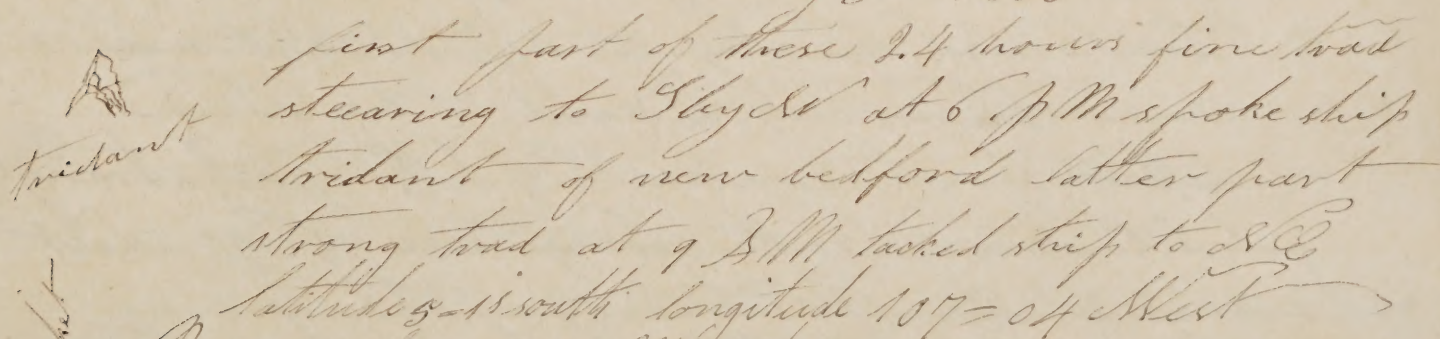 first part of these 24 hours fine trad
steearing to SbyW at 6 PM spoke ship
tridant
tridant of new bedford latter part
strong trad at 9 AM tacked ship to NE
latitude 5=15 south longitude 107=04 West